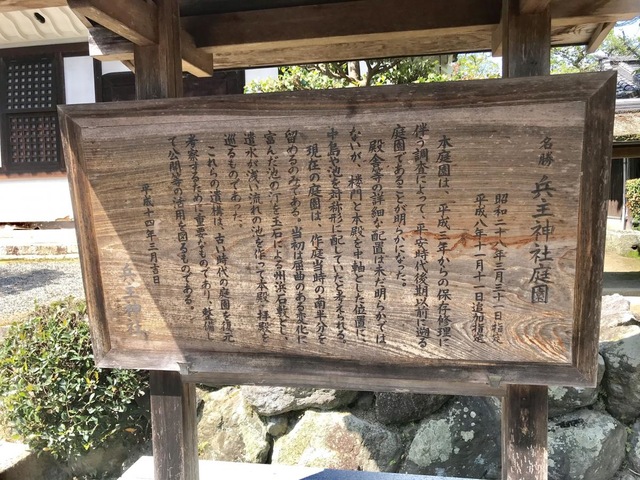 名勝 兵主神社庭園
昭和二十八年三月三十一日指定
平成八年十一月十一日追加指定
本庭園は、平成三年からの保存修理に
伴う調査によって、平安時代後期以前に遡る
庭園であることが明らかになった。
殿舎等の詳細な配置は未だ明らかでは
ないが、楼門と本殿を中軸とした位置に、
中島や池を対称形に配していたと考えられる。
現在の庭園は、作庭当時の南半分を
留めるのみである。当初は出島のある変化に
富んだ池の汀を玉石による州浜石敷とし、
遣水が浅い流れの池を作って本殿、拝殿を
巡るものであった。
これらの遺構は、古い時代の庭園を復元
考察するために重要なものであり、整備し
て公開等の活用を図るものである。
平成十四年三月吉日
兵主神社